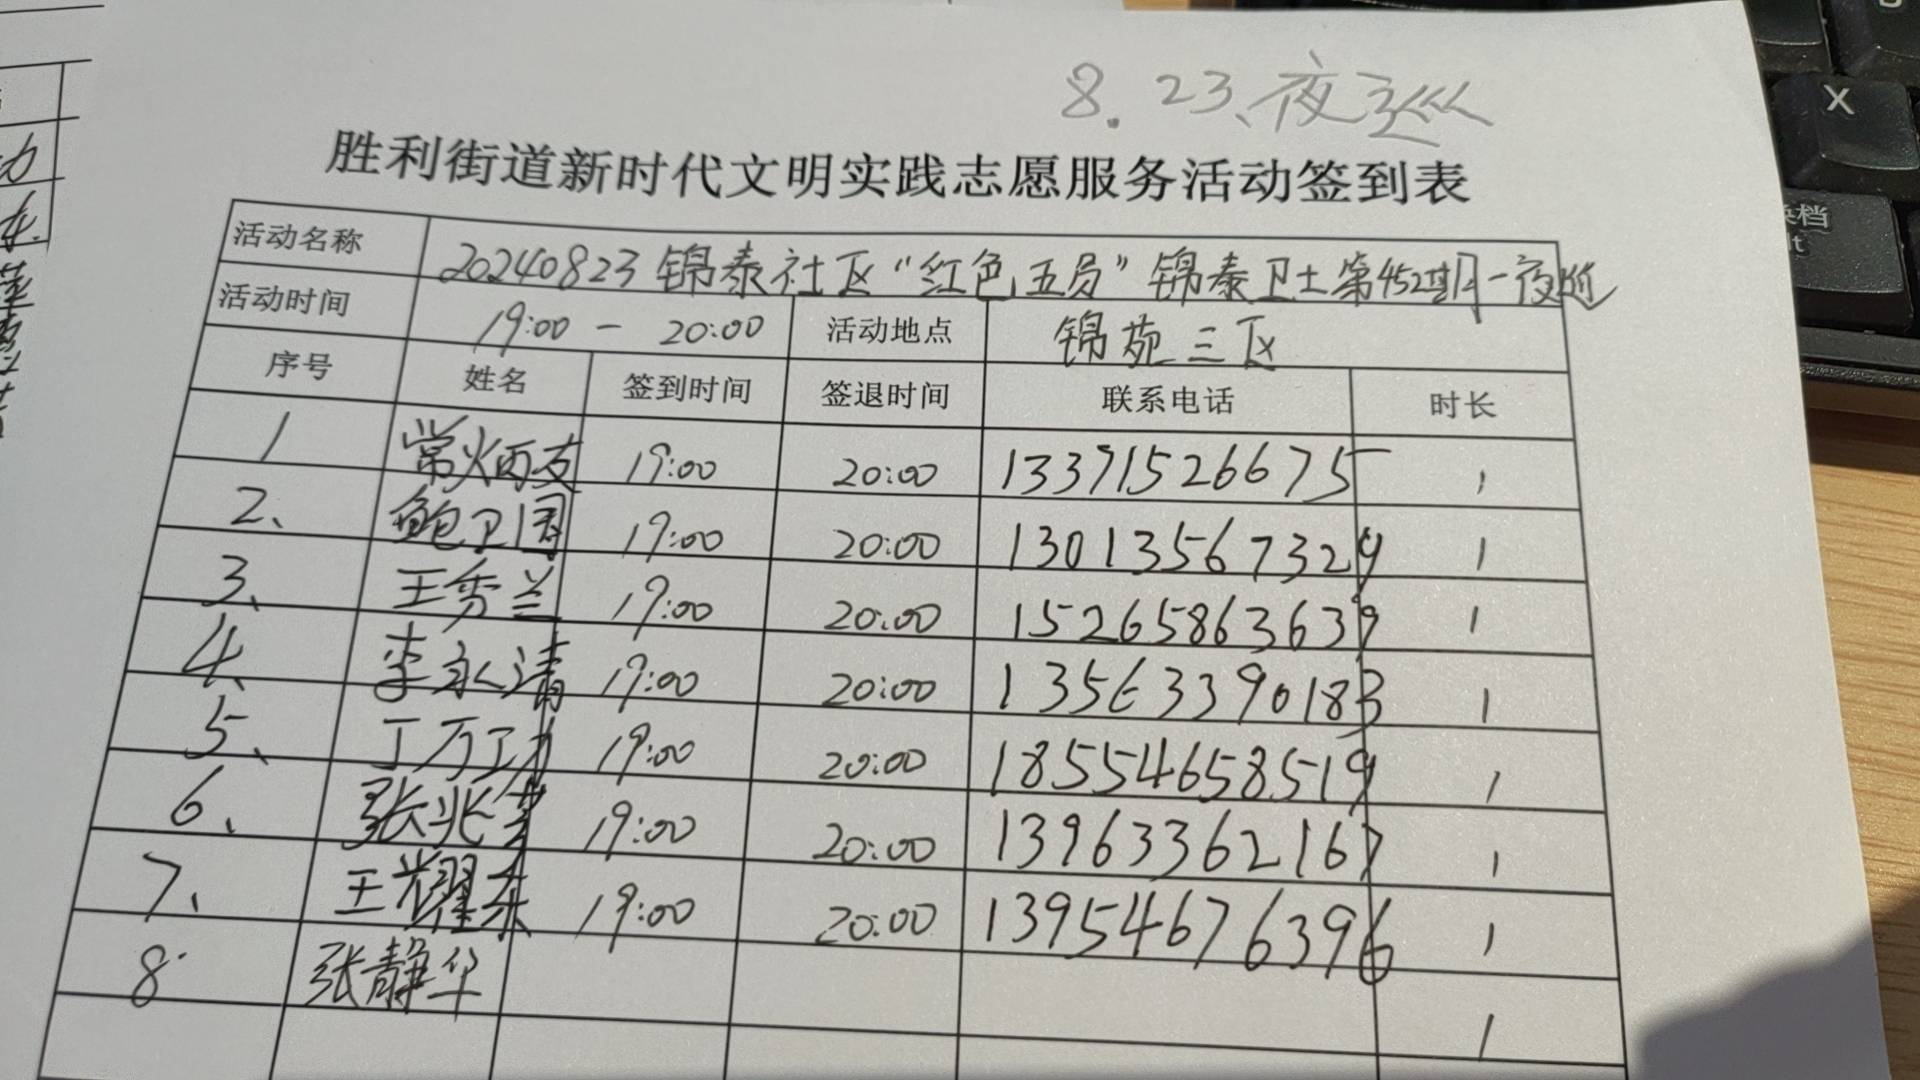 8.23、夜巡
胜利街道新时代文明实践志愿服务活动签到表
活动名称 20240823锦泰社区“红色五员”锦泰卫士第452期一夜巡
活动时间 19:00 — 20:00 活动地点 锦苑三区
序号 姓名 签到时间 签退时间 联系电话 时长
1 常炳芝 19:00 20:00 13371526675 1
2、 鲍卫国 19:00 20:00 13013567329 1
3、 王秀兰 19:00 20:00 15265863639 1
4、 李永清 19:00 20:00 13563390183 1
5、 丁万功 19:00 20:00 18554658519 1
6、 张兆 19:00 20:00 13963362167 1
7、 王耀东 19:00 20:00 13954676396 1
8 张静华 1